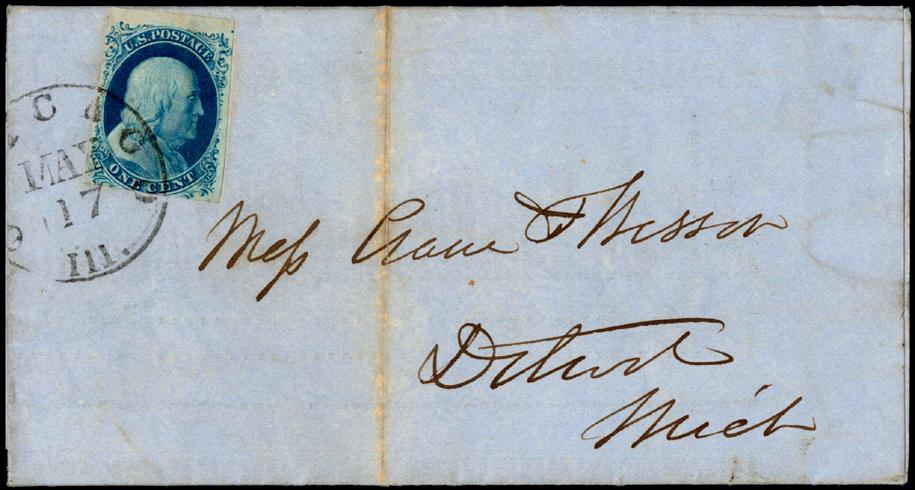 U.S. POSTAGE
ONE CENT
MAY
17
Ill.
Mess Crane & Wesson
Detroit
Mich